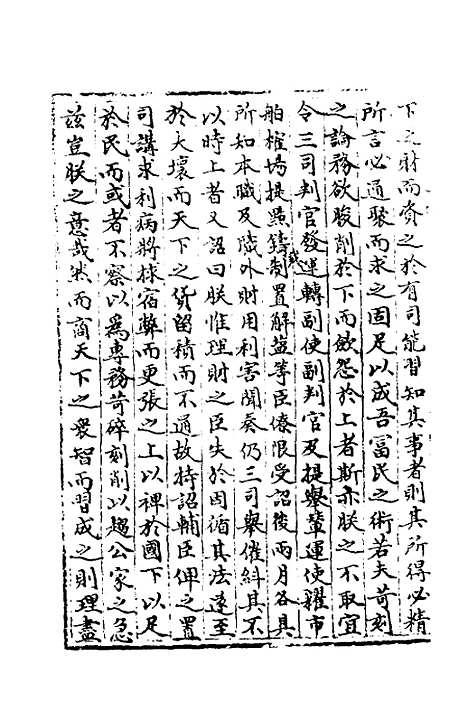 下之財而資之於有司能習知其事者則其所得必精
所言必通聚而求之固足以成吾富民之術若夫苛刻
之論務欲朘削於下而斂怨於上者斯亦朕之不取宜
令三司判官發運轉副使副判官及提舉輦運使糴市
舶榷場提㸃鑄錢制置解盐等臣僚限受詔後兩月各具
所知本職及職外財用利害聞奏仍三司舉催糾其不
以時上者又詔曰朕惟理財之臣失於因循其法遂至
於大壞而天下之貨留積而不通故特詔輔臣俾之置
司講求利病將捄宿弊而更張之上以裨於國下以足
於民而或者不察以爲專務苛碎刻削以趨公家之急
兹豈朕之意哉然而商天下之衆智而習成之則理盡